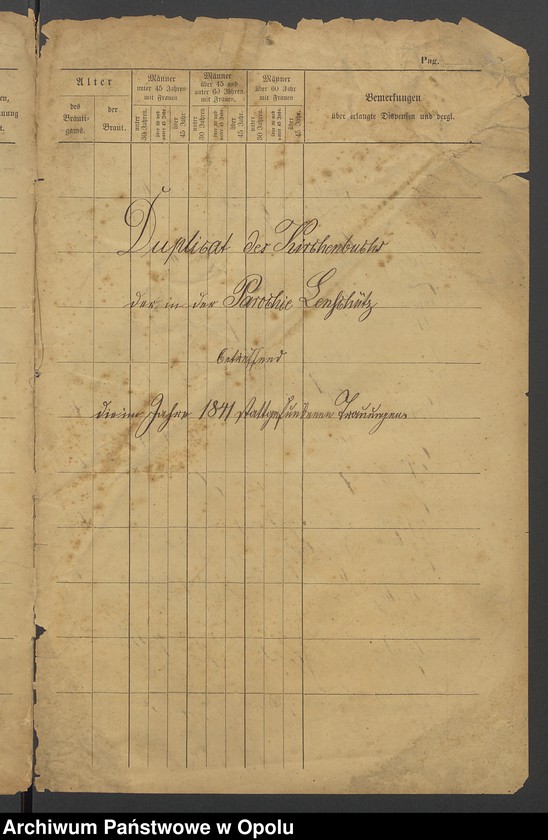 en,
nung
t.
Pag.
Alter
des Bräuti-gams.
der Braut.
Männer unter 45 Jahren mit Frauen
unter 30 Jahren.
über 30 und unter 45 Jahr.
über 45 Jahr.
Männer über 45 und unter 60 Jahren mit Frauen.
unter 30 Jahren.
über 30 und unter 45 Jahr.
über 45 Jahr.
Männer über 60 Jahr mit Frauen
unter 30 Jahren.
über 30 und unter 45 Jahr.
über 45 Jahr.
Bemerkungen
über erlangte Dispensen und dergl.
Duplicat des Kirchenbuchs
der in der Parochie Lenschütz
betreffend
die im Jahre 1841 stattgefundenen Trauungen.
Archiwum Państwowe w Opolu